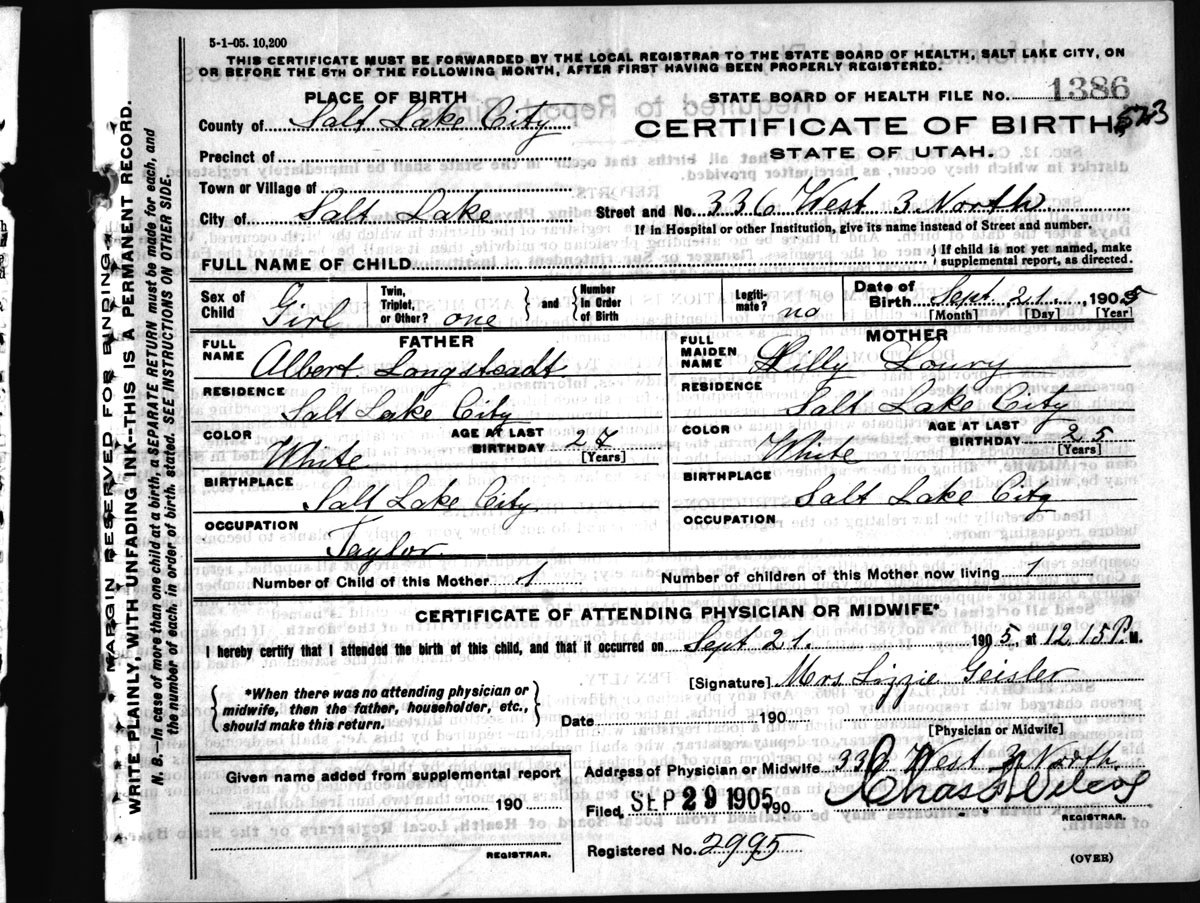 5-1-05. 10,200
THIS CERTIFICATE MUST BE FORWARDED BY THE LOCAL REGISTRAR TO THE STATE BOARD OF HEALTH, SALT LAKE CITY, ON
OR BEFORE THE 5TH OF THE FOLLOWING MONTH, AFTER FIRST HAVING BEEN PROPERLY REGISTERED.
MARGIN RESERVED FOR BINDING
WRITE PLAINLY, WITH UNFADING INK--THIS IS A PERMANENT RECORD.
N. B.--In case of more than one child at a birth, a SEPARATE RETURN must be made for each, and
the number of each, in order of birth, stated. SEE INSTRUCTIONS ON OTHER SIDE.
PLACE OF BIRTH
STATE BOARD OF HEALTH FILE NO. 1386
County of Salt Lake City
CERTIFICATE OF BIRTH 523
Precinct of
STATE OF UTAH.
Town or Village of
City of Salt Lake Street and No. 336 West 3 North
If in Hospital or other Institution, give its name instead of Street and number.
FULL NAME OF CHILD If child is not yet named, make supplemental report, as directed.
Sex of Child Girl Twin, Triplet, or Other? one and Number In Order of Birth Legiti-mate? no Date of Birth Sept 21, 1905
[Month] [Day] [Year]
FATHER
FULL NAME Albert Longsteadt
RESIDENCE
Salt Lake City
COLOR White AGE AT LAST BIRTHDAY 27
[Years]
BIRTHPLACE
Salt Lake City
OCCUPATION
Taylor
MOTHER
FULL MAIDEN NAME Lilly Loury
RESIDENCE
Salt Lake City
COLOR White AGE AT LAST BIRTHDAY 25
[Years]
BIRTHPLACE
Salt Lake City
OCCUPATION
Number of Child of this Mother 1 Number of children of this Mother now living 1
CERTIFICATE OF ATTENDING PHYSICIAN OR MIDWIFE*
I hereby certify that I attended the birth of this child, and that it occurred on Sept 21. 1905, at 12 15 P. M.
[Signature] Mrs Lizzie Geisler
*When there was no attending physician or
midwife, then the father, householder, etc.,
should make this return.
Date 190
[Physician or Midwife]
Given name added from supplemental report
190
REGISTRAR.
Address of Physician or Midwife 336 West 3 North
Filed, SEP 29 1905 190 Chas
REGISTRAR.
Registered No. 2995
(OVER)